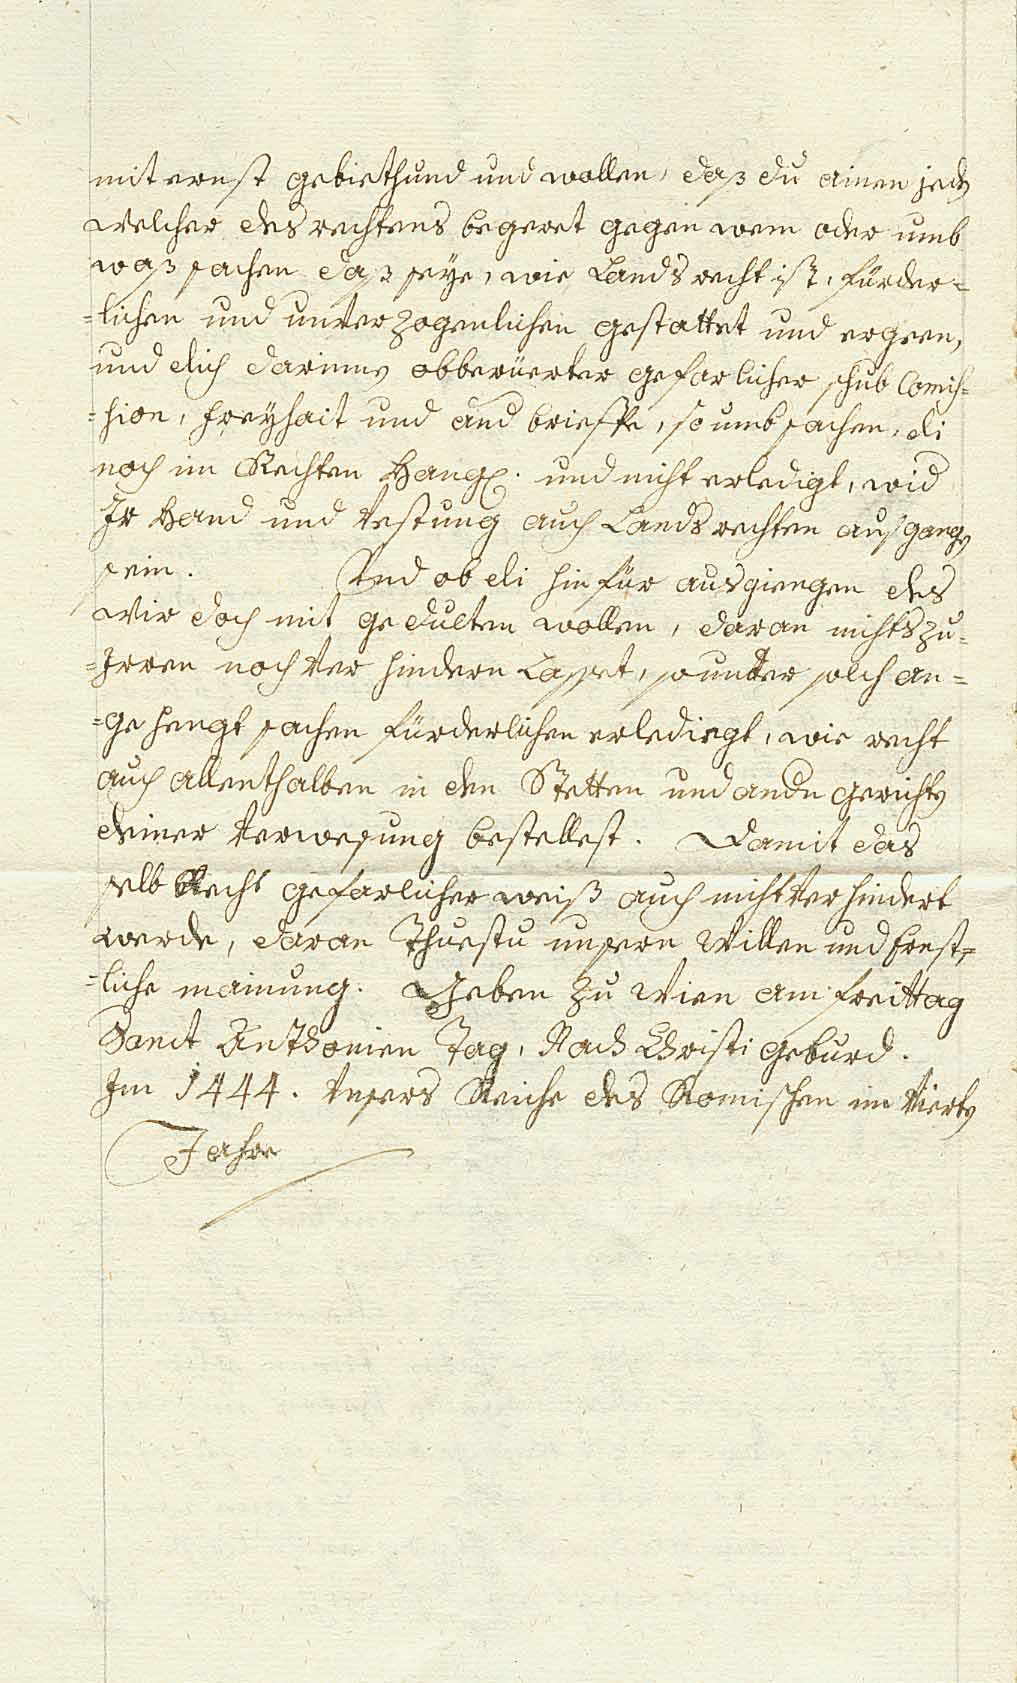 mit ernst gebiethund und wollen, daß du ainen jedn
welcher des rechtens begeret gegen wem oder umb
waß sachen daß seye, wie Lands recht ist, fürder=
=lichen und unverzogenlichen gestattet und ergeen,
und dich darinnen obberüerter gefarlicher schub Comis=
=sion, freyhait und and brieffe, so umb sachen, di
noch im Rechten Hangen. und nicht erledigt, wid
Ir Hand und vestung auch Lands rechten ausgangen
sein. Und ob di hinfür ausgiengen des
wir doch mit gedulten wollen, daran nichts zu=
=Irren noch verhindern Lasset, sounter solch an=
=gehengt sachen fürderlichen erledigt, wie recht
auch allenthalben in den Stetten und andn gerichtn
deiner verwesung bestellest. Damit das
selb Recht gefarlicher weiß auch nicht verhindert
werde, daran Thuestu unsern Willen und Ernst=
=liche mainung. Geben zu Wien am freittag
Sanct Anthonien Tag, Nach Christi geburd.
Im 1444. Unsers Reichs des Romischen im Viertn
Jahre